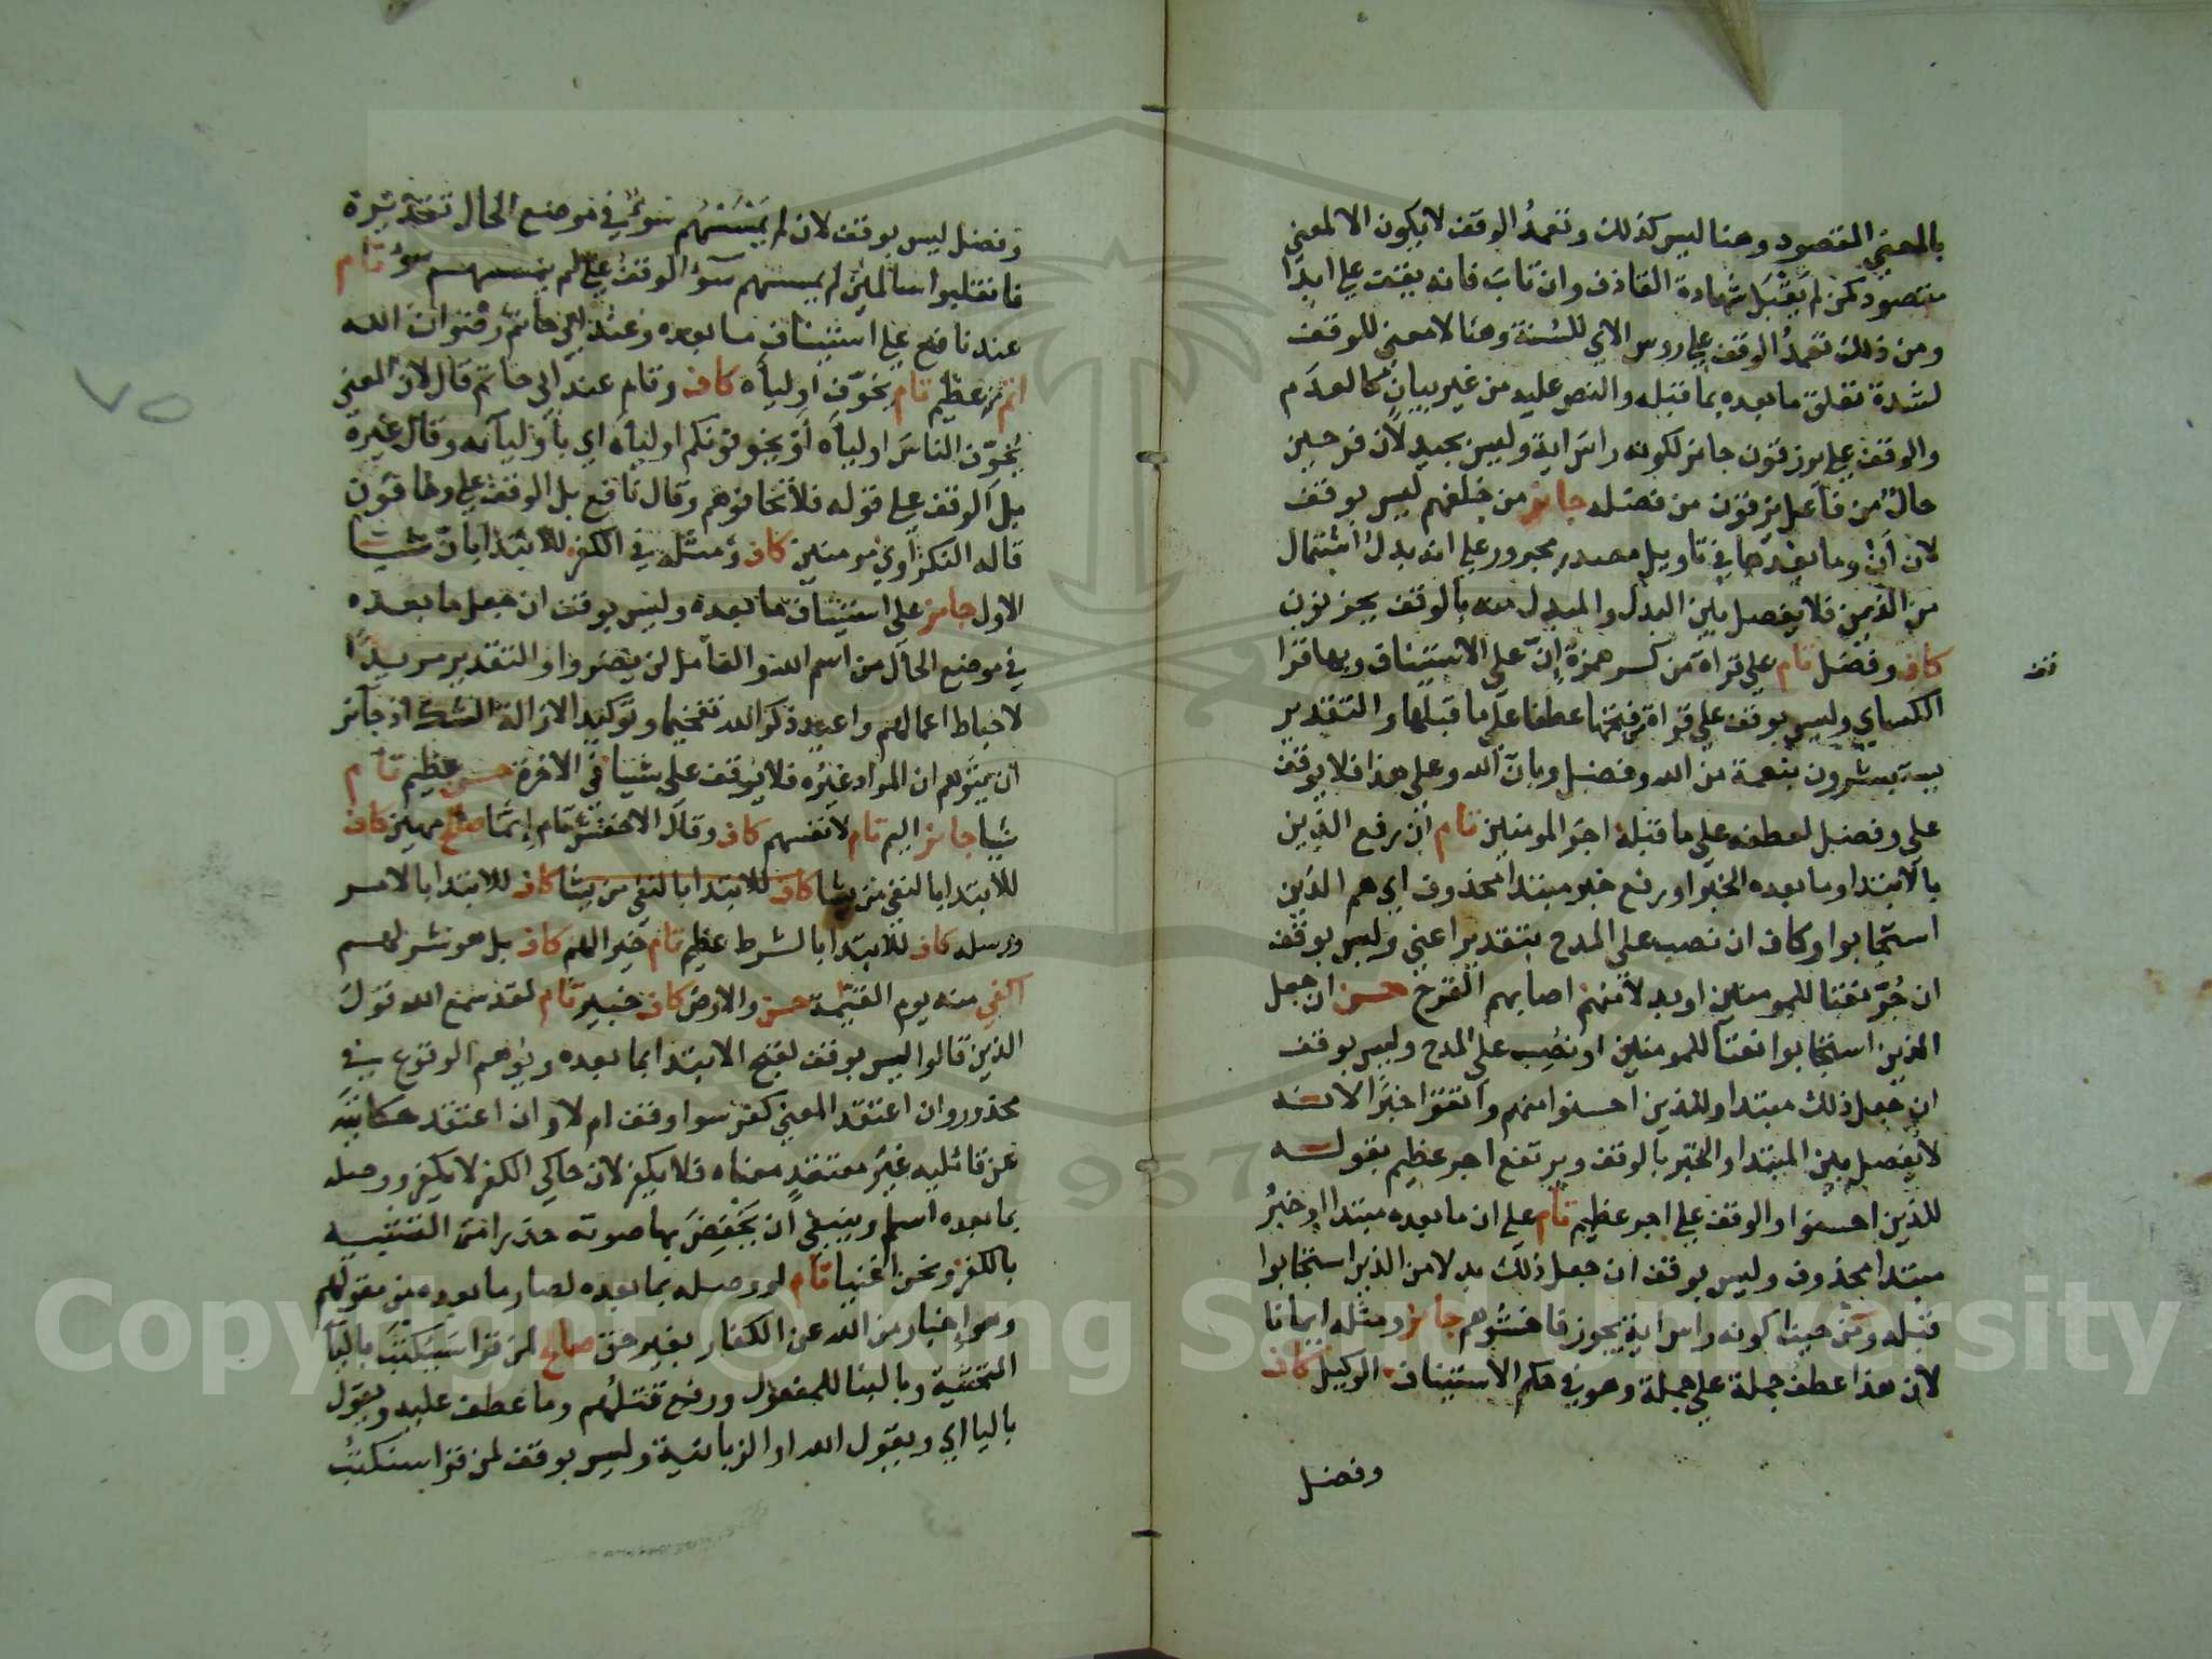 بالمعني المقصود وهنا ليس كذلك وتعمد الوقف لا يكون الا لمعني
مقصود كمن لم يقبل شهادة القاذف وان تاب فانه يقف علي ابدا
ومن ذلك تعمد الوقف علي روس الاي للسنة وهنا لا معني للوقف
لشدة تعلق ما بعده بما قبله والنص عليه من غير بيان كالعدم
والوقف علي يرزقون جائز لكونه راس اية وليس بجيد لان فرحين
حال من فاعل يرزقون من فضله جائز من خلفهم ليس بوقف
لان أن وما بعدها في تاويل مصدر مجرور علي انه بدل اشتمال
من الذين فلا يفصل بين البدل والمبدل منه بالوقف يحزنون
كاف وفضل تام علي قراة من كسر همزة إن علي الاستيناف وبها قرا
الكسائي وليس بوقف علي قراة فتحها عطفا علي ما قبلها والتقدير
يستبشرون بنعمة من الله وفضل وبان الله وعلي هذا فلا يوقف
علي وفضل لعطفه علي ما قبله اجر المومنين تام ان رفع الذين
بالابتدا وما بعده الخبر او رفع خبر مبتدا محذوف اي هم الذين
استجابوا وكاف ان نصب علي المدح بتقدير اعني وليس بوقف
ان جر نعتا للمومنين او بدلا منهم اصابهم القرح حسن ان جعل
الذين استجابوا نعتا للمومنين او نصب علي المدح وليس بوقف
ان جعل ذلك مبتدا وللذين احسنوا منهم واتقوا خبرا لانه
لا يفصل بين المبتدا والخبر بالوقف ويرتفع اجر عظيم بقوله
للذين احسنوا والوقف علي اجر عظيم تام علي ان ما بعده مبتدا او خبر
مبتدا محذوف وليس بوقف ان جعل ذلك بدلا من الذين استجابوا
قبله ومن حيث كونه راس اية يجوز فاخشوهم جائز ومثله ايمانا
لان هذا عطف جملة علي جملة وهو في حكم الاستيناف الوكيل كاف
وفضل
قف
وفضل ليس بوقف لان لم يمسسهم سوء في موضع الحال تقديره
فانقلبوا سالمين لم يمسسهم سوء الوقف علي لم يمسسهم سوء تام
عند نافع علي استيناف ما بعده وعند ابي حاتم رضوان الله
اتم من عظيم تام يخوف اولياه كاف وتام عند ابي حاتم قال لان المعني
يخوف الناس اولياه أو يخوفونكم اولياه اي باوليائه وقال غيره
بل الوقف علي قوله فلا تخافوهم وقال نافع بل الوقف علي وخافون
قاله النكزاوي مومنين كاف ومثله في الكفر للابتدا بان شيا
الاول جائز علي استيناف ما بعده وليس بوقف ان جعل ما بعده
في موضع الحال من اسم الله والعامل لن يضروا والتقدير مريدا
لاحباط اعمالهم واعيد ذكر الله تفخيما وتوكيدا لازالة الشك اذ جائز
ان يتوهم ان المراد غيره فلا يوقف علي شيا في الاخرة حسن عظيم تام
شيا جائز اليم تام لانفسهم كاف وقال الاخفش تام إثما صالح مهين كاف
للابتدا بالنفي من يشا كاف للابتدا بالنفي من يشا كاف للابتدا بالامر
ورسله كاف للابتدا بالشرط عظيم تام خيرا لهم كاف بل هو شر لهم
اكفي منه يوم القيمة حسن والارض كاف خبير تام لقد سمع الله قول
الذين قالوا ليس بوقف لقبح الابتدا بما بعده ويوهم الوقوع في
محذور وان اعتقد المعني كفر سوا وقف ام لا وان اعتقد حكايته
عن قائليه غير معتقد معناه فلا يكفر لان حاكي الكفر لا يكفر ووصله
بما بعده اسلم وينبغي ان يخفض بها صوته حذرا من التشبيه
بالكفر ونحن اغنيا تام لو وصله بما بعده لصار ما بعده من مقولهم
وهو إخبار من الله عن الكفار بغير حق صالح لمن قرا سيكتب باليا
التحتية وبالبنا للمفعول ورفع قتلهم وما عطف عليه ويقول
باليا اي ويقول الله او الزبانية وليس بوقف لمن قرا سنكتب
٧٥
Copyright © King Saud University
1957